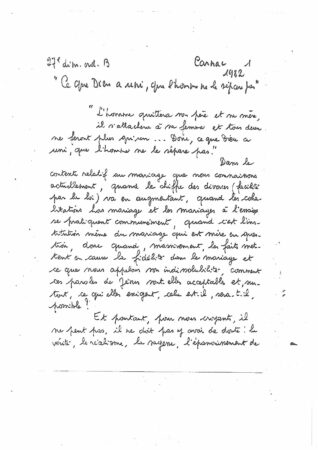 27e dim. ord. B Carnac 1
1982
"Ce que Dieu a uni, que l'homme ne le sépare pas"
"L'homme quittera son père et sa mère,
il s'attachera à sa femme et tous deux
ne feront plus qu'un... Donc, ce que Dieu a
uni, que l'homme ne le sépare pas."
Dans le
contexte relatif au mariage que nous connaissons
actuellement, quand le chiffre des divorces (facilité
par la loi) va en augmentant, quand les coha-
bitations hors mariage et les mariages à l'essai
se pratiquent communément, quand c'est l'ins-
titution même du mariage qui est mise en ques-
tion, donc quand, massivement, les faits met-
tent en cause la fidélité dans le mariage et
ce que nous appelons son indissolubilité, comment
ces paroles de Jésus sont-elles acceptables et, sur-
tout, ce qu'elles exigent, cela est-il, sera-t-il,
possible ?
Et pourtant, pour nous croyants, il
ne peut pas, il ne doit pas y avoir de doute : la
vérité, le réalisme, la sagesse, l'épanouissement de